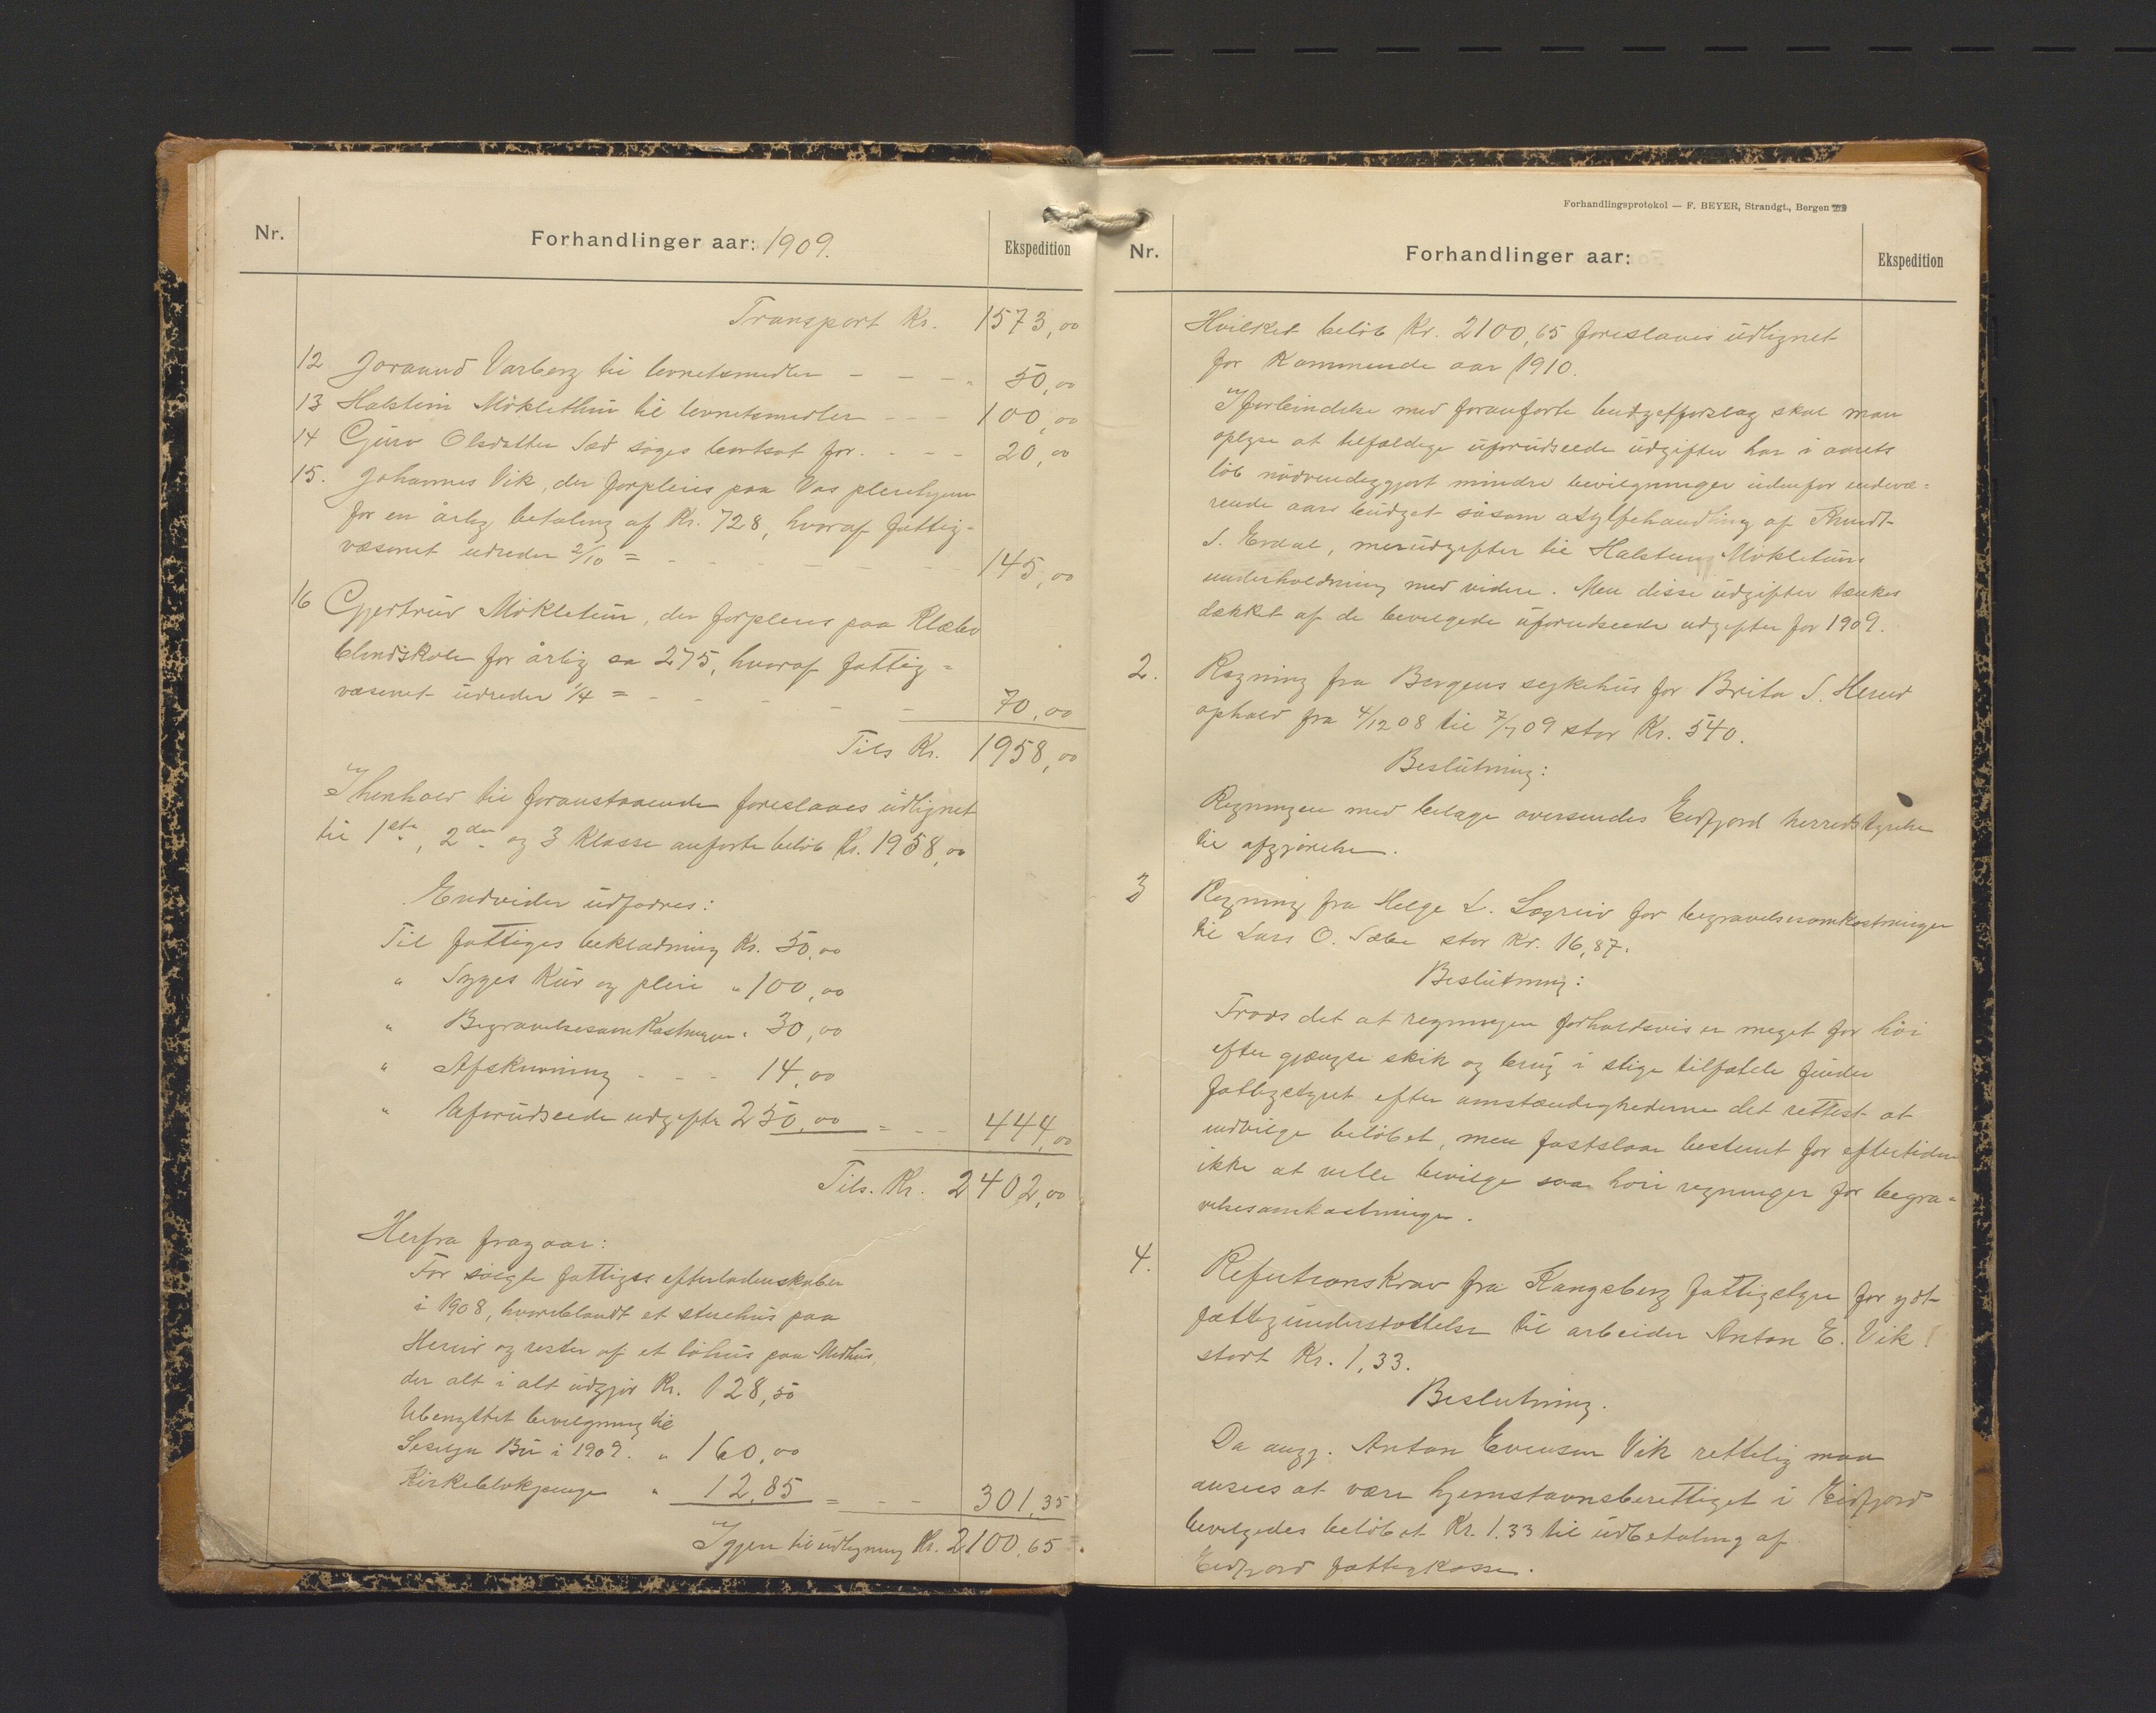 Nr.
Forhandlinger aar: 1909.
Ekspedition
Transport Kr. 1573,00
12 Joraand Varberg til levnetsmidler - - - " 50,00
13 Halstein Mökléthun til levnetsmidler - - - 100,00
14 Guro Olsdatter Sæd söges bortsat for. - - - 20,00
15. Johannes Vik, der forpleies paa Vos pleiehjem
for en årlig betaling af Kr. 728, hvoraf fattig-
væsenet udreder 2/10 = - - - - - - - 145,00
16 Gjertrud Mökletun, der forpleies paa Klæbo
blindskole for årlig ca 275, hvoraf fattig=
væsenet udreder 1/4 = - - - - - 70,00
Tils Kr. 1958,00
I henhold til foranstaaende foreslaaes udlignet
til 1ste, 2den og 3 klasse anförte belöb Kr. 1958,00
Endvider udfordres:
Til fattiges beklædning Kr. 50,00
" Syges kur og pleie " 100,00
" Begravelsesomkostninger " 30,00
" Afskrivning - - - 14,00
" Uforudseede udgifter 250,00 = - - 444,00
Tils. Kr. 2402,00
Herfra fragaar:
For solgte fattiges efterladenskaber
i 1908, hvoriblandt et stuehus paa
Hereid og rester af et löhus paa Medhus,
der alt i alt udgjör Kr. 128,50
Ubenyttet bevilgning til
Bu i 1909. " 160,00
Kirkeblokpenge " 12,85 = - - 301,35
Igjen til udligning Kr. 2100,65
Forhandlingsprotokol — F. BEYER, Strandgt., Bergen
Nr.
Forhandlinger aar:
Ekspedition
Hvilket belöb Kr. 2100,65 foreslaaes udlignet
for kommende aar 1910.
I forbindelse med foranförte budgetforslag skal man
oplyse at tilfældige uforudseede udgifter har i aarets
löb nödvendiggjort mindre bevilgninger udenfor indevæ=
rende aars budget såsom asylbehandling af Knudt
S. Erdal, merudgifter til Halstein Mökletuns
underholdning med videre. Men disse udgifter tænkes
dækket af de bevilgede uforudseede udgifter for 1909.
2. Regning fra Bergens sykehus for Brita S. Hereid
ophold fra 4/12 08 til 7/7 09 stor Kr. 540.
Beslutning:
Regningen med bilage oversendes Eidfjord herredstyrelse
til afgjörelse.
3 Regning fra Helge L. Lægreid for begravelsesomkostninger
til Lars O. Sæbø stor Kr. 16,87.
Beslutning:
Trods det at regningen forholdsvis er meget for höi
efter gjængse skik og brug i slige tilfælde finder
fattigstyret efter omstændighederne det rettest at
indvilge belöbet, men fastslaar bestemt for eftertiden
ikke at ville bevilge saa höie regninger for begra=
velsesomkostninger.
4. Refutionskrav fra Kongsberg fattigstyre for ydt
fattigunderstöttelse til arbeider Anton E. Vik
stort Kr. 1,33.
Beslutning.
Da angj. Anton Evensen Vik rettelig maa
ansees at være hjemstavnsberettiget i Eidfjord
bevilgedes belöbet Kr. 1.33 til udbetaling af
Eidfjord fattigkasse.